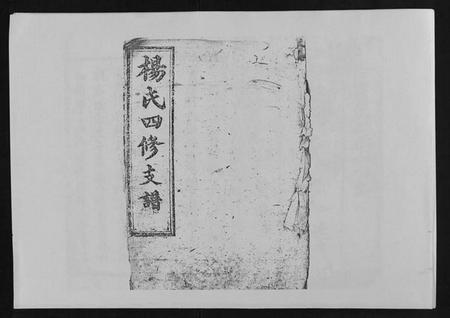 楊氏四修支譜